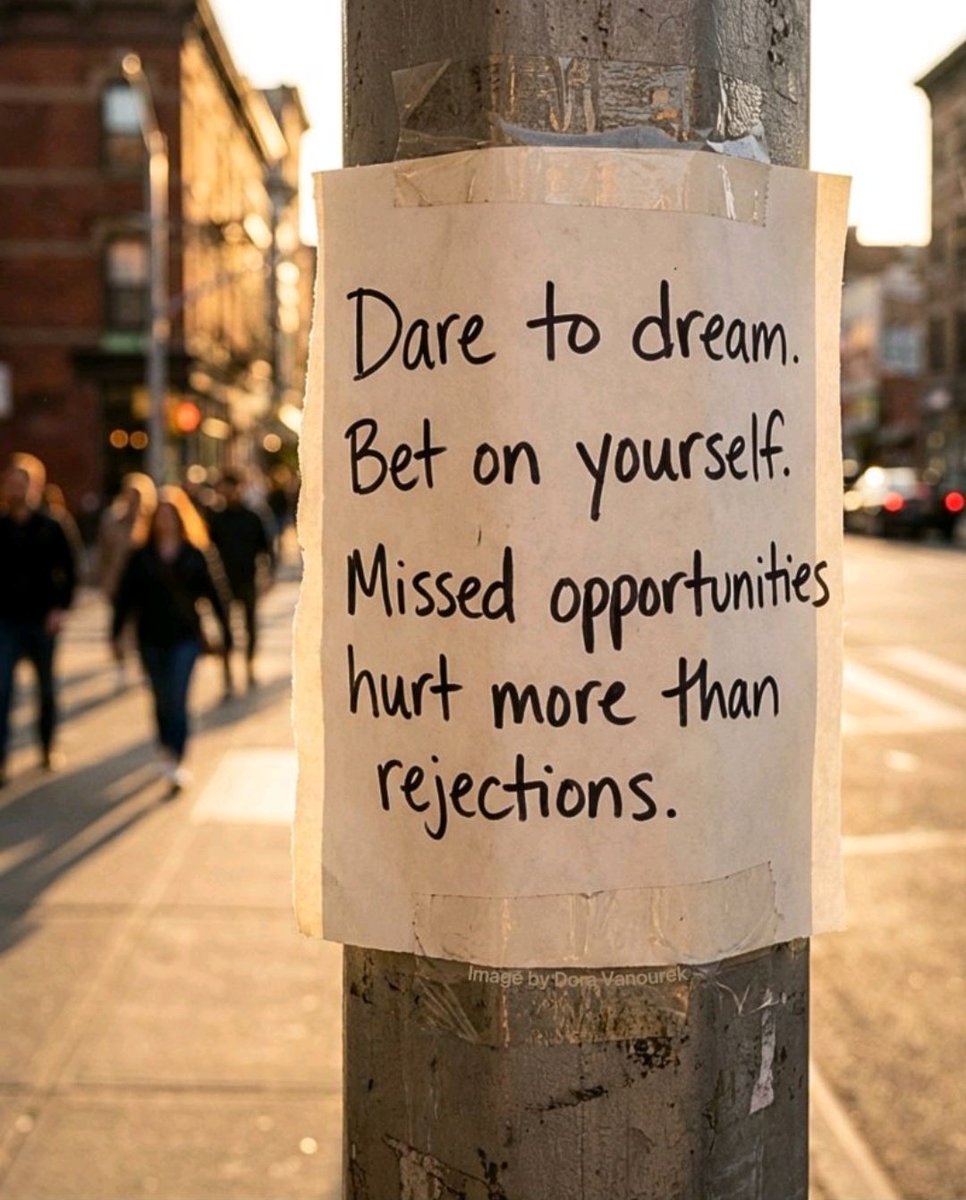 Dare to dream.
Bet on yourself.
Missed opportunities
hurt more than
rejections.
Image by Dora Vanourek